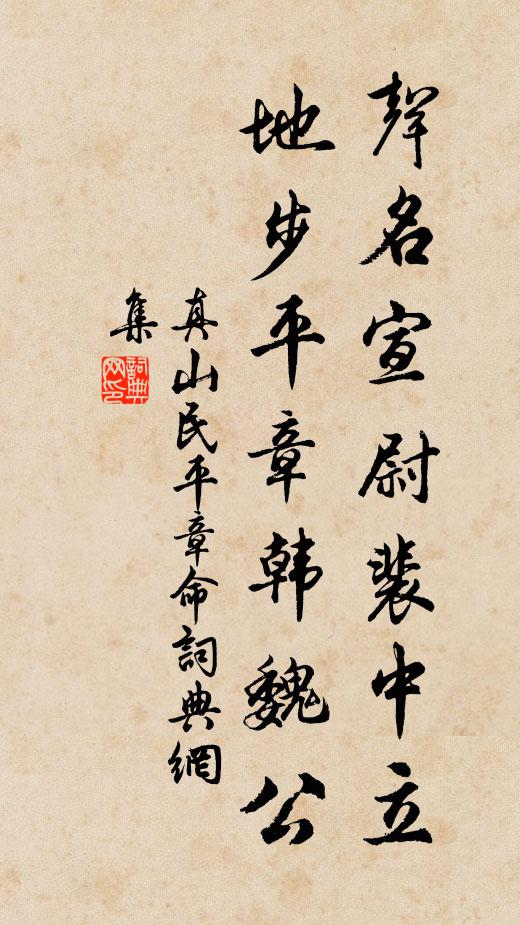 聲名宣尉裴中立
地步平章韓魏公
真山民平章命詞典網
集
詞典
网印